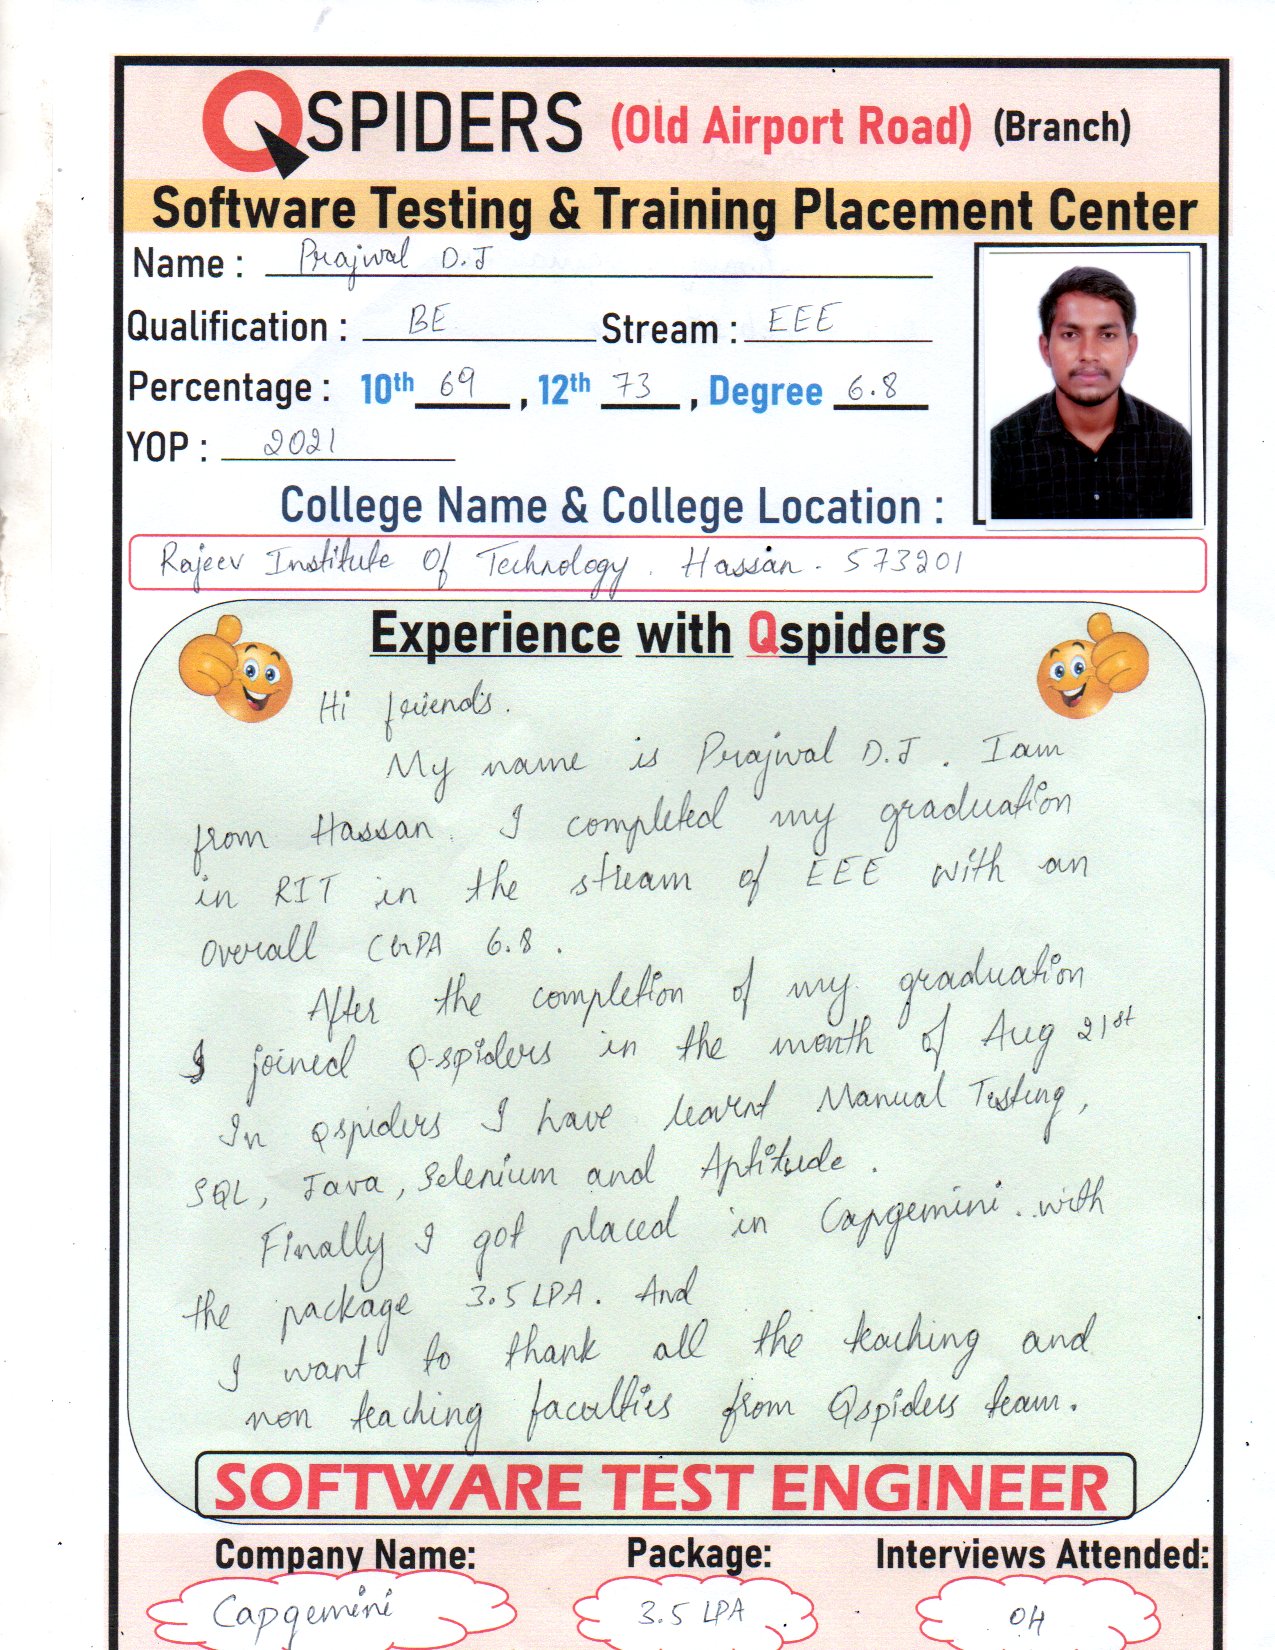 QSPIDERS (Old Airport Road) (Branch)
Software Testing & Training Placement Center
Name : Prajwal D.J
Qualification : BE Stream : EEE
Percentage : 10th 69 , 12th 73 , Degree 6.8
YOP : 2021
College Name & College Location :
Rajeev Institute Of Technology. Hassan - 573201
Experience with Qspiders
Hi friends.
My name is Prajwal D.J . I am
from Hassan. I completed my graduation
in RIT in the stream of EEE with an
overall CGPA 6.8 .
After the completion of my graduation
I joined Q-spiders in the month of Aug 21st
In Qspiders I have learnt Manual Testing,
SQL, Java, Selenium and Aptitude .
Finally I got placed in Capgemini . with
the package 3.5 LPA. And
I want to thank all the teaching and
non teaching faculties from Qspiders team.
SOFTWARE TEST ENGINEER
Company Name: Package: Interviews Attended:
Capgemini 3.5 LPA . 04